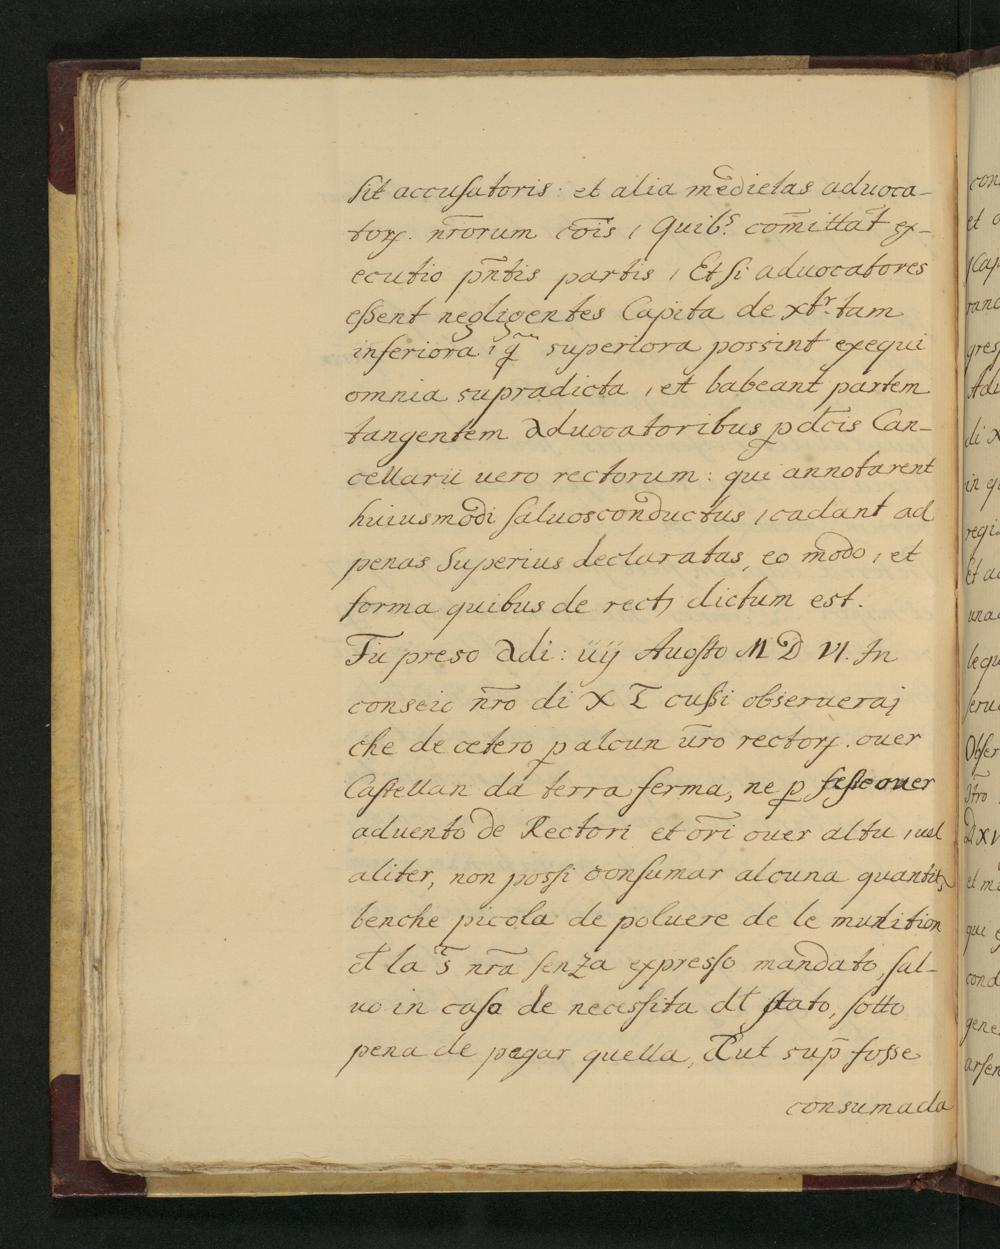 sit accusatoris: et alia medietas aduoca-
torꝝ. nr̄orum cōis, Quibꝰ com̄ittat̄ ex-
ecutio pn̄tis partis, Et si aduocatores
essent negligentes Capita de xtr. tam
inferiora, q̃ superiora possint exequi
omnia supradicta, et habeant partem
tangentem Aduocatoribus p̱dcīs Can-
cellarii uero rectorum: qui annotarent
huiusmodi saluosconductus, cadant ad
penas Superius declaratas, eo modo, et
forma quibus de rect, dictum est.
Fu preso Adi: iiij Auosto M D VI. In
conseio nr̄o di X Z̄ cussi obserueraj
che de cetero ꝑ alcun ūro rectorꝝ. ouer
Castellan da terra ferma, ne ꝑ feste ouer
aduento de Rectori et or̄i ouer altu, uel
aliter, non possi consumar alcuna quantit,
benche picola de poluere de le munition
d̄ la S̄ nr̄a senza expresso mandato, sal-
uo in caso de necessita dl stato, sotto
pena de pagar quella, Aut sup̄ fosse
consumada
con
et
Cap
ranc
gres
Adu
di X
in q
regi
Et a
una
le qu
seru
Obser
nr̄o
D XV
et m
qui
cond
gene
arsen